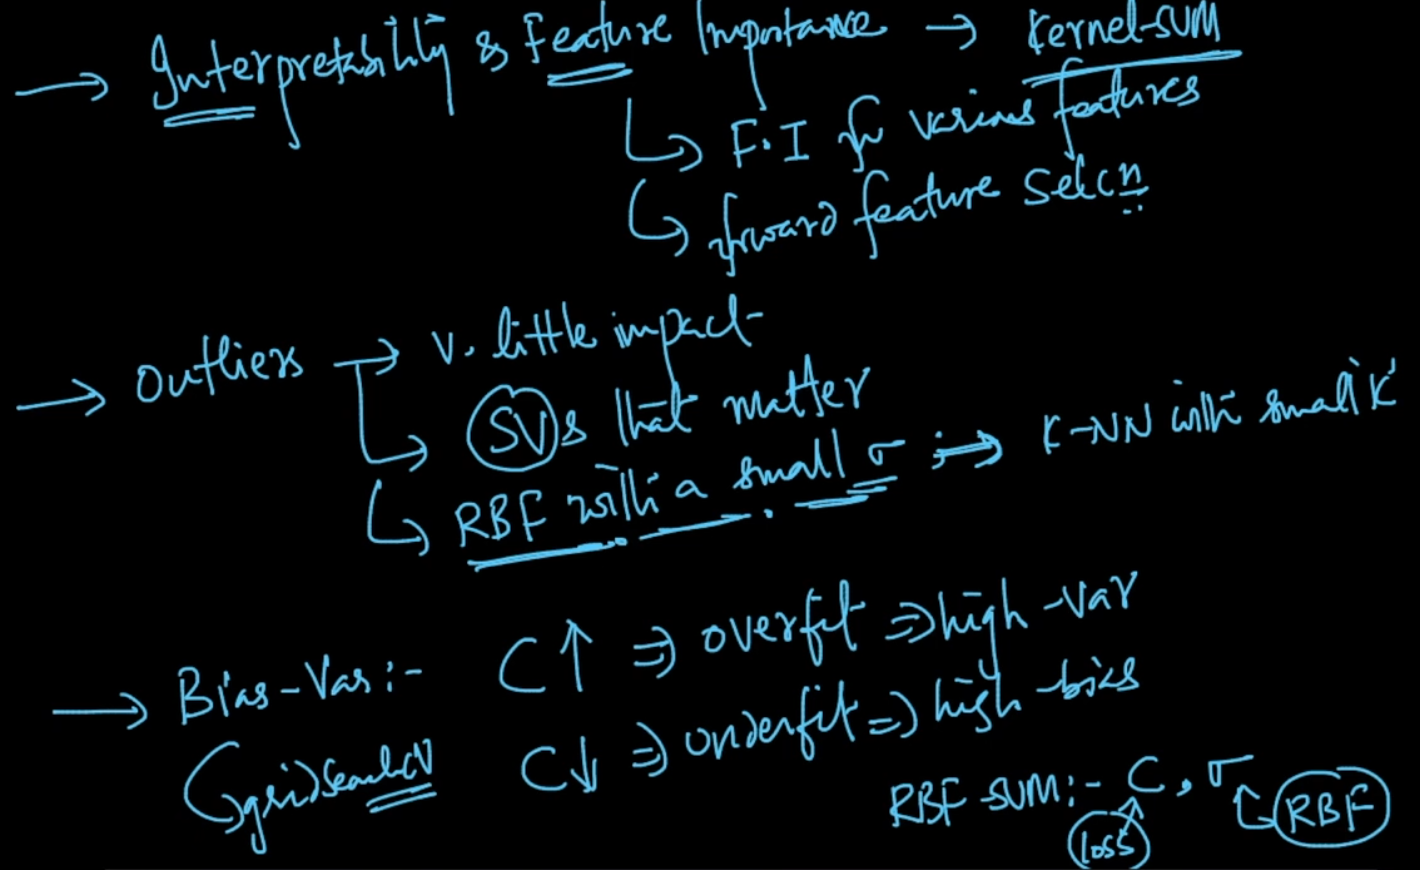 → Interpretability & Feature Importance → Kernel-SVM
↳ F.I for various features
↳ forward feature selcn
→ Outliers → v. little impact
↳ SVs that matter
↳ RBF with a small σ ; ⇒ K-NN with small 'K'
→ Bias-Var :- C↑ ⇒ overfit ⇒ high-var
C↓ ⇒ underfit ⇒ high-bias
↳ gridSearchCV
RBF-SVM :- C, σ
loss RBF